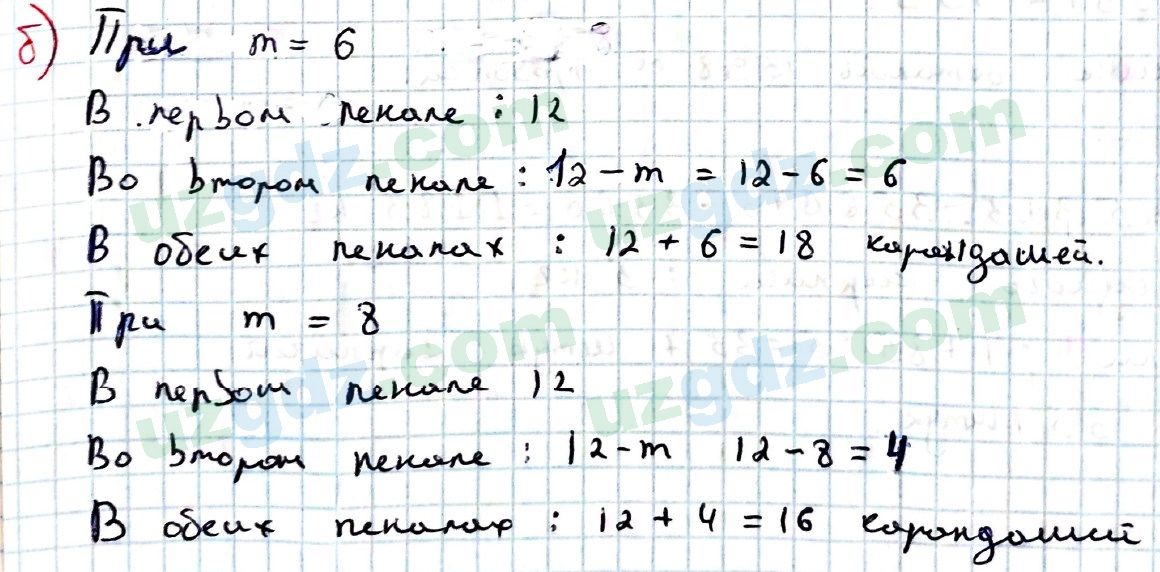 б) При m = 6
В первом пенале : 12
Во втором пенале : 12 - m = 12 - 6 = 6
В обеих пеналах : 12 + 6 = 18 карандашей.
При m = 8
В первом пенале 12
Во втором пенале : 12 - m 12 - 8 = 4
В обеих пеналах : 12 + 4 = 16 карандаший
uzgdz.com
uzgdz.com
uzgdz.com
uzgdz.com